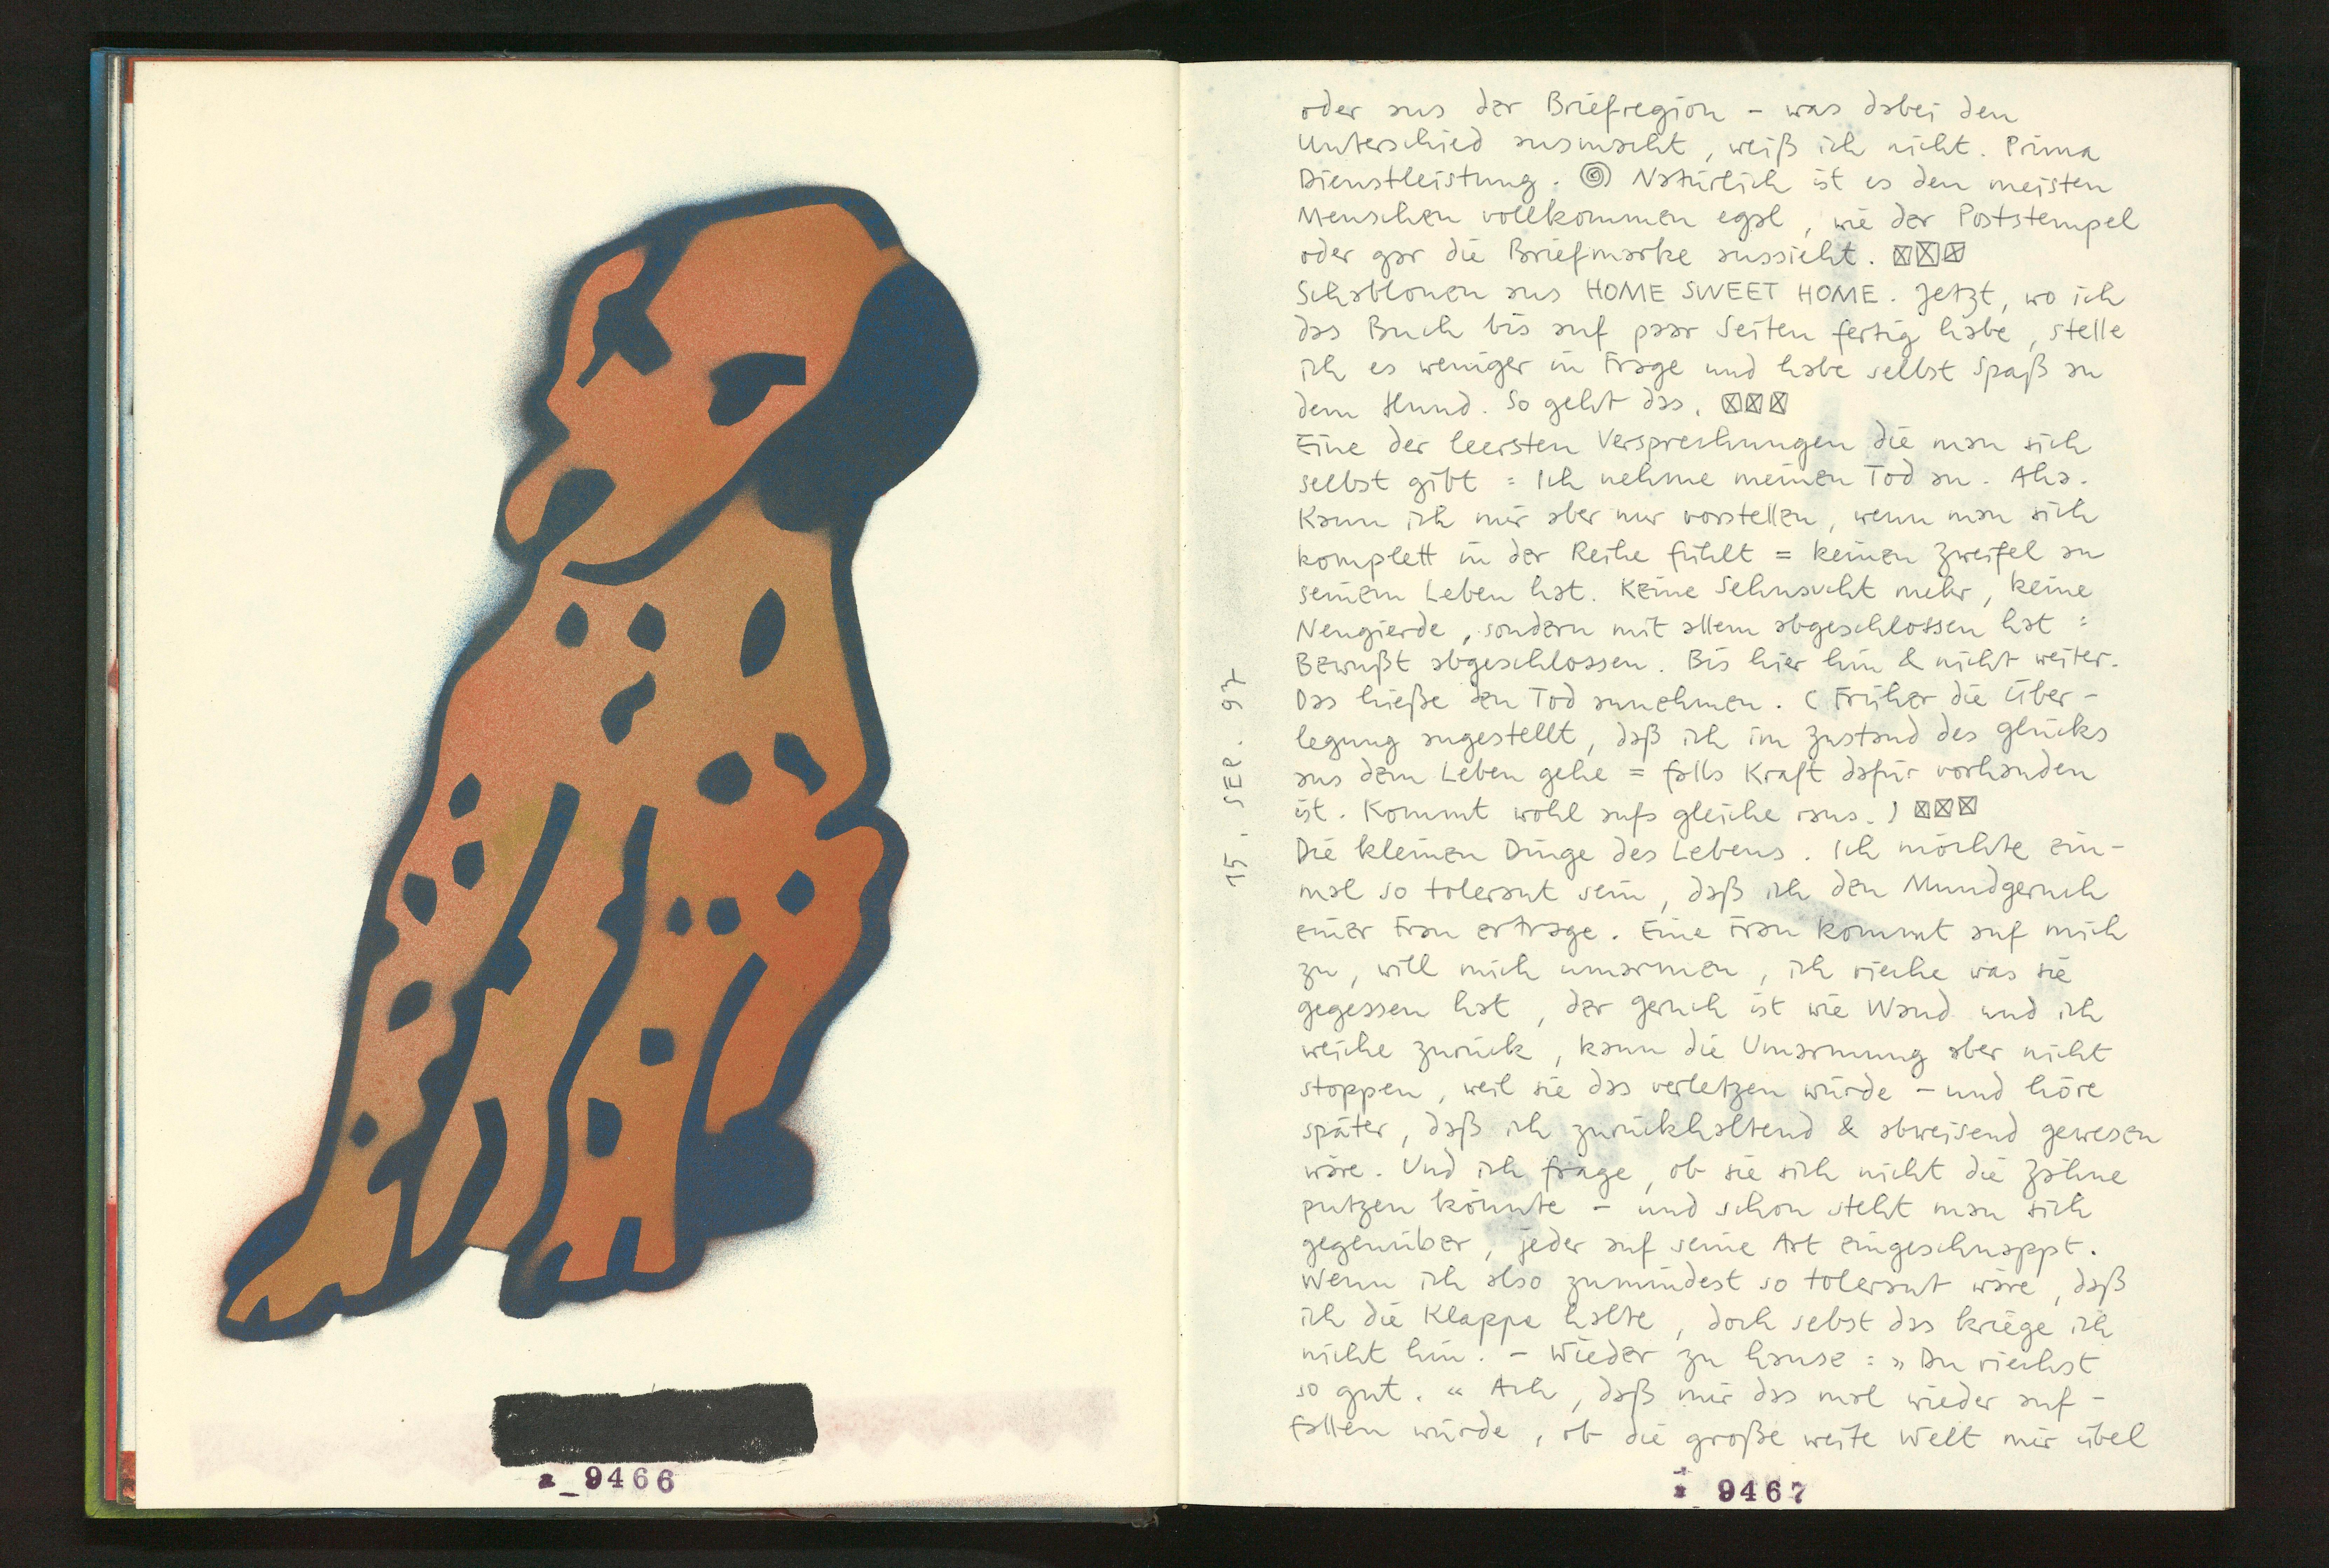 a_9466
oder aus der Briefregion – was dabei den
Unterschied ausmacht, weiß ich nicht. Prima
Dienstleistung. Natürlich ist es den meisten
Menschen vollkommen egal, wie der Poststempel
oder gar die Briefmarke aussieht. ☒☒☒
Schablonen aus HOME SWEET HOME. Jetzt, wo ich
das Buch bis auf paar Seiten fertig habe, stelle
ich es weniger in Frage und habe selbst Spaß an
dem Hund. So geht das. ☒☒☒
Eine der leersten Versprechungen die man sich
selbst gibt = Ich nehme meinen Tod an. Aha.
Kann ich mir aber nur vorstellen, wenn man sich
komplett in der Reihe fühlt = keinen Zweifel an
seinem Leben hat. Keine Sehnsucht mehr, keine
Neugierde, sondern mit allem abgeschlossen hat =
Bewußt abgeschlossen. Bis hier hin & nicht weiter.
Das hieße den Tod annehmen. (Früher die Über-
legung angestellt, daß ich im Zustand des Glücks
aus dem Leben gehe = falls Kraft dafür vorhanden
ist. Kommt wohl aufs gleiche raus.) ☒☒☒
Die kleinen Dinge des Lebens. Ich möchte ein-
mal so tolerant sein, daß ich den Mundgeruch
einer Frau ertrage. Eine Frau kommt auf mich
zu, will mich umarmen, ich rieche was sie
gegessen hat, der Geruch ist wie Wand und ich
weiche zurück, kann die Umarmung aber nicht
stoppen, weil sie das verletzen würde – und höre
später, daß ich zurückhaltend & abweisend gewesen
wäre. Und ich frage, ob sie sich nicht die Zähne
putzen könnte – und schon steht man sich
gegenüber, jeder auf seine Art eingeschnappt.
Wenn ich also zumindest so tolerant wäre, daß
ich die Klappe halte, doch selbst das kriege ich
nicht hin. – Wieder zu hause: »Du riechst
so gut.« Ach, daß mir das mal wieder auf-
fallen würde, ob die große weite Welt mir übel
15. SEP. 97
9467